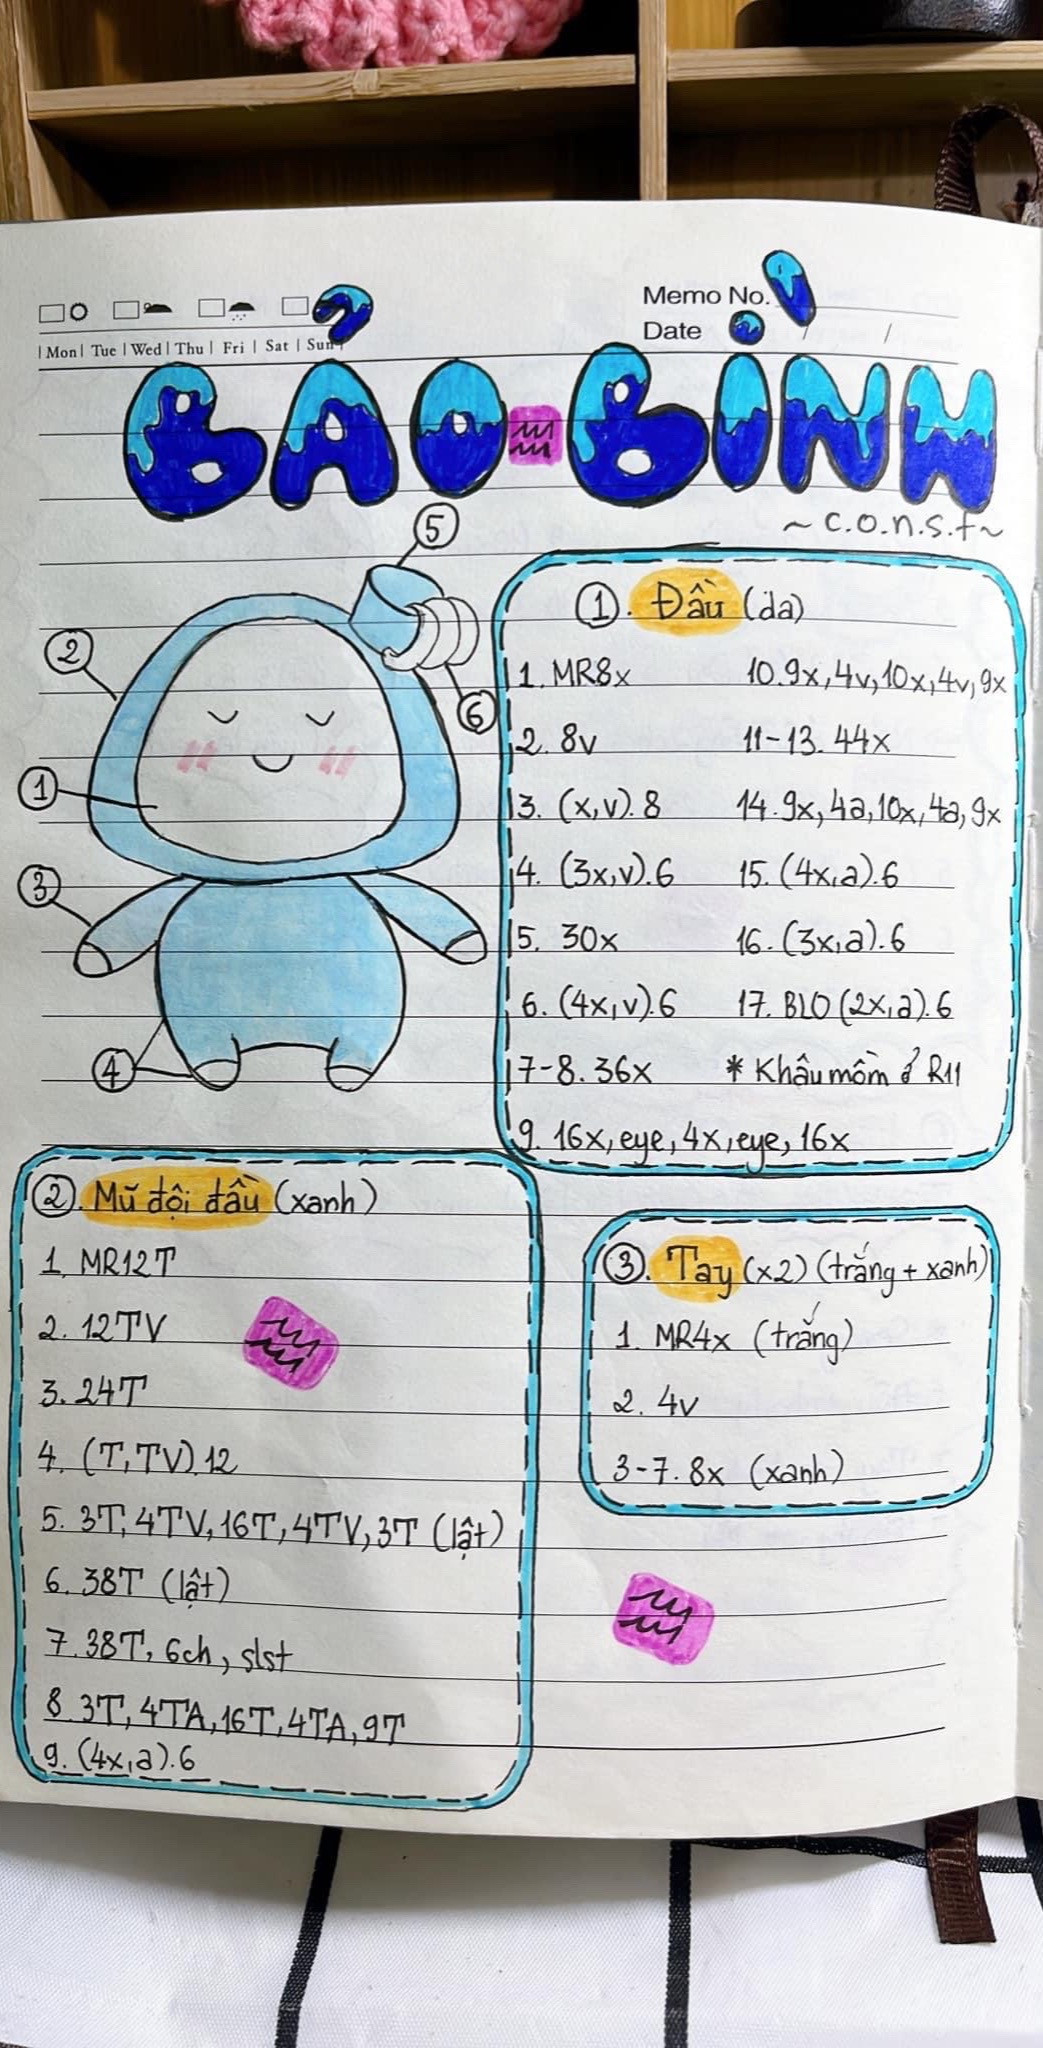 Memo No.
Date / /
Mon | Tue | Wed | Thu | Fri | Sat | Sun
BẢO BÌNH
~ c.o.n.s.t ~
5
2
6
1
3
4
1. Đầu (da)
1. MR8x
2. 8v
3. (x,v).8
4. (3x,v).6
5. 30x
6. (4x,v).6
7-8. 36x
9. 16x, eye, 4x, eye, 16x
10. 9x, 4v, 10x, 4v, 9x
11-13. 44x
14. 9x, 4a, 10x, 4a, 9x
15. (4x,a).6
16. (3x,a).6
17. BLO (2x,a).6
* Khâu mồm ở R11
2. Mũ đội đầu (xanh)
1. MR12T
2. 12TV
3. 24T
4. (T, TV).12
5. 3T, 4TV, 16T, 4TV, 3T (lật)
6. 38T (lật)
7. 38T, 6ch, slst
8. 3T, 4TA, 16T, 4TA, 9T
9. (4x,a).6
3. Tay (x2) (trắng + xanh)
1. MR4x (trắng)
2. 4v
3-7. 8x (xanh)